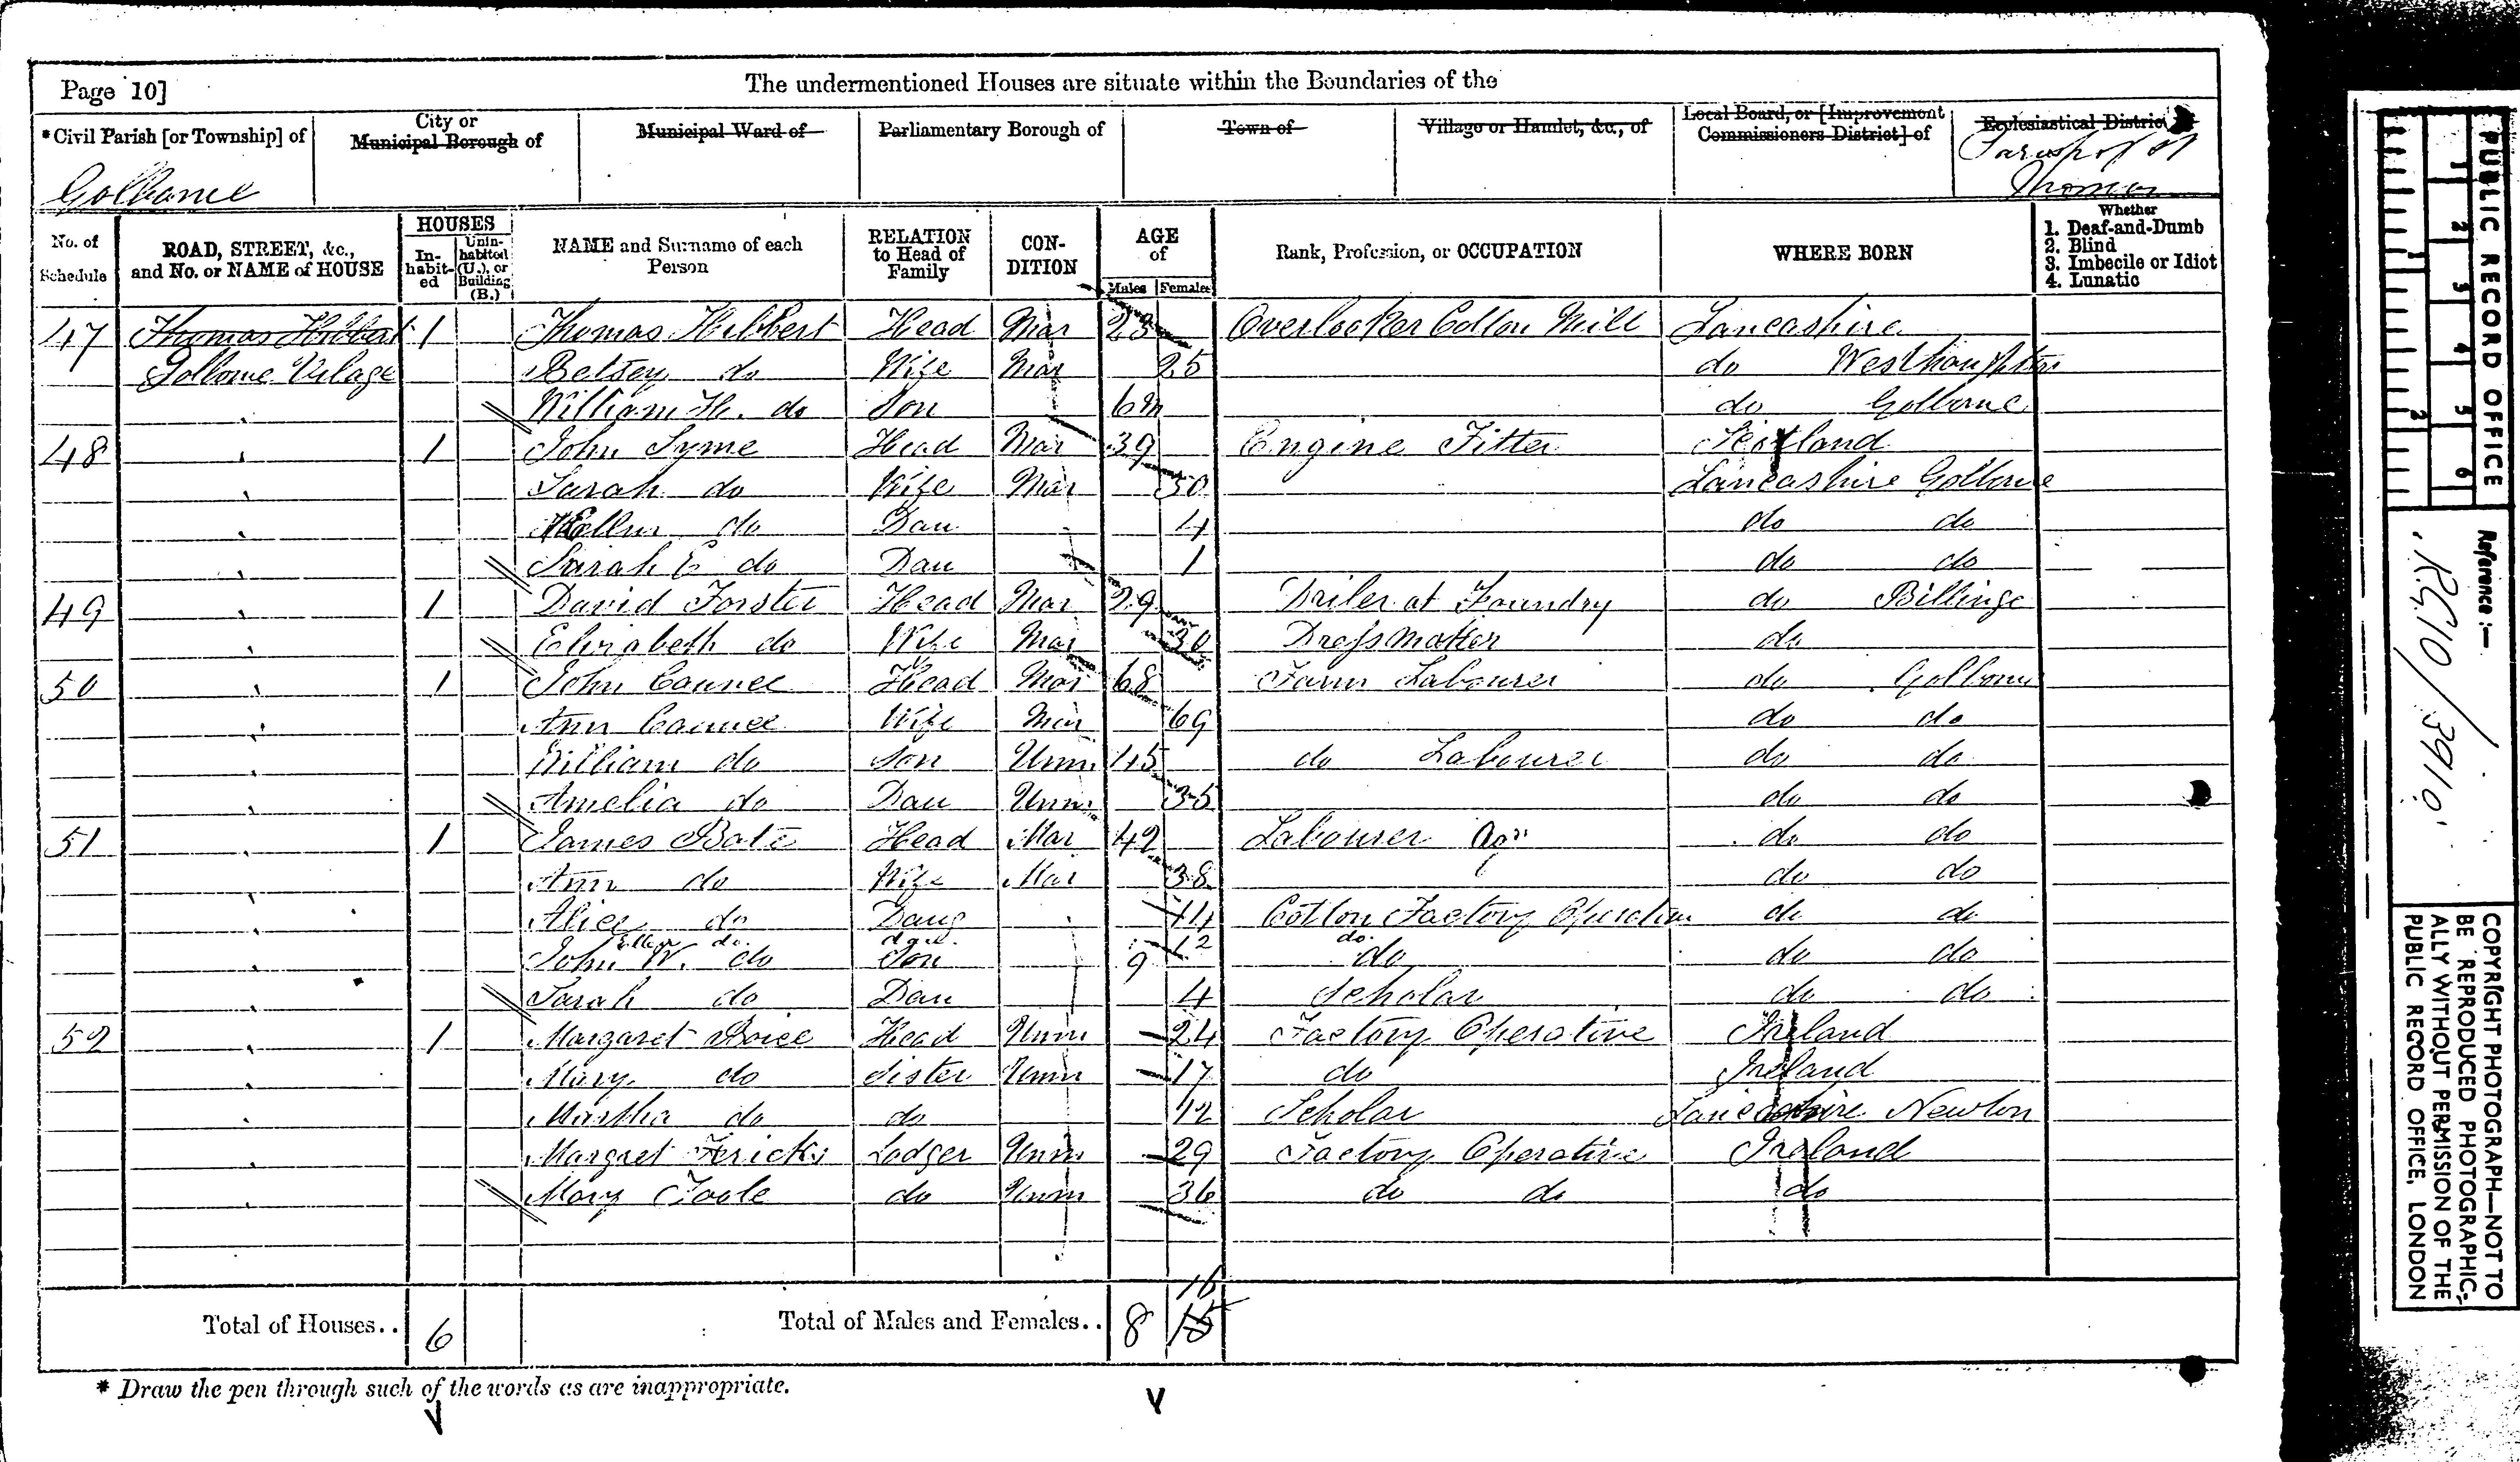 Page 10]
The undermentioned Houses are situate within the Boundaries of the
*Civil Parish [or Township] of
City or Municipal Borough of
Municipal Ward of
Parliamentary Borough of
Town of
Village or Hamlet, &c., of
Local Board, or [Improvement Commissioners District] of
Ecclesiastical District
Golborne
Parish of St
Thomas
No. of Schedule
ROAD, STREET, &c., and No. or NAME of HOUSE
HOUSES
In-habit-ed
Unin-habited (U.), or Building (B.)
NAME and Surname of each Person
RELATION to Head of Family
CON-DITION
AGE of
Males Females
Rank, Profession, or OCCUPATION
WHERE BORN
Whether
1. Deaf-and-Dumb
2. Blind
3. Imbecile or Idiot
4. Lunatic
47 Thomas Hibbert 1 Thomas Hibbert Head Mar 23 Overlooker Cotton Mill Lancashire
Golborne Vilage Betsey do Wife Mar 25 do Westhaughton
William H. do Son 6m do Golborne
48 1 John Syme Head Mar 39 Engine Fitter Scotland
Sarah do Wife Mar 30 Lancashire Golborne
Ellen do Dau 4 do do
Sarah E do Dau 1 do do
49 1 David Forster Head Mar 29 Driler at Foundry do Billinge
Elizabeth do Wife Mar 30 Dressmaker do
50 1 John Caunce Head Mar 68 Farm Labourer do Golborne
Ann Caunce Wife Mar 69 do do
William do Son Unm 45 do Labourer do do
Amelia do Dau Unm 35 do do
51 1 James Bate Head Mar 42 Labourer Agr do do
Ann do Wife Mar 38 do do
Alice do Daug 14 Cotton Factory Operative do do
Ellen do. dau. 12 do.
John W. do Son 9 do do do
Sarah do Dau 4 Scholar do do
52 1 Margaret Boice Head Unm 24 Factory Operative Ireland
Mary do Sister Unm 17 do Ireland
Martha do do 12 Scholar Lancashire Newton
Margret Lodger Unm 29 Factory Operative Ireland
Mary Toole do Unm 36 do do do
Total of Houses.. 6
Total of Males and Females.. 8 16
15
* Draw the pen through such of the words as are inappropriate.
PUBLIC RECORD OFFICE
1 2 3 4 5 6
1 2
Reference :—
RG10/3910
COPYRIGHT PHOTOGRAPH—NOT TO
BE REPRODUCED PHOTOGRAPHIC-
ALLY WITHOUT PERMISSION OF THE
PUBLIC RECORD OFFICE, LONDON